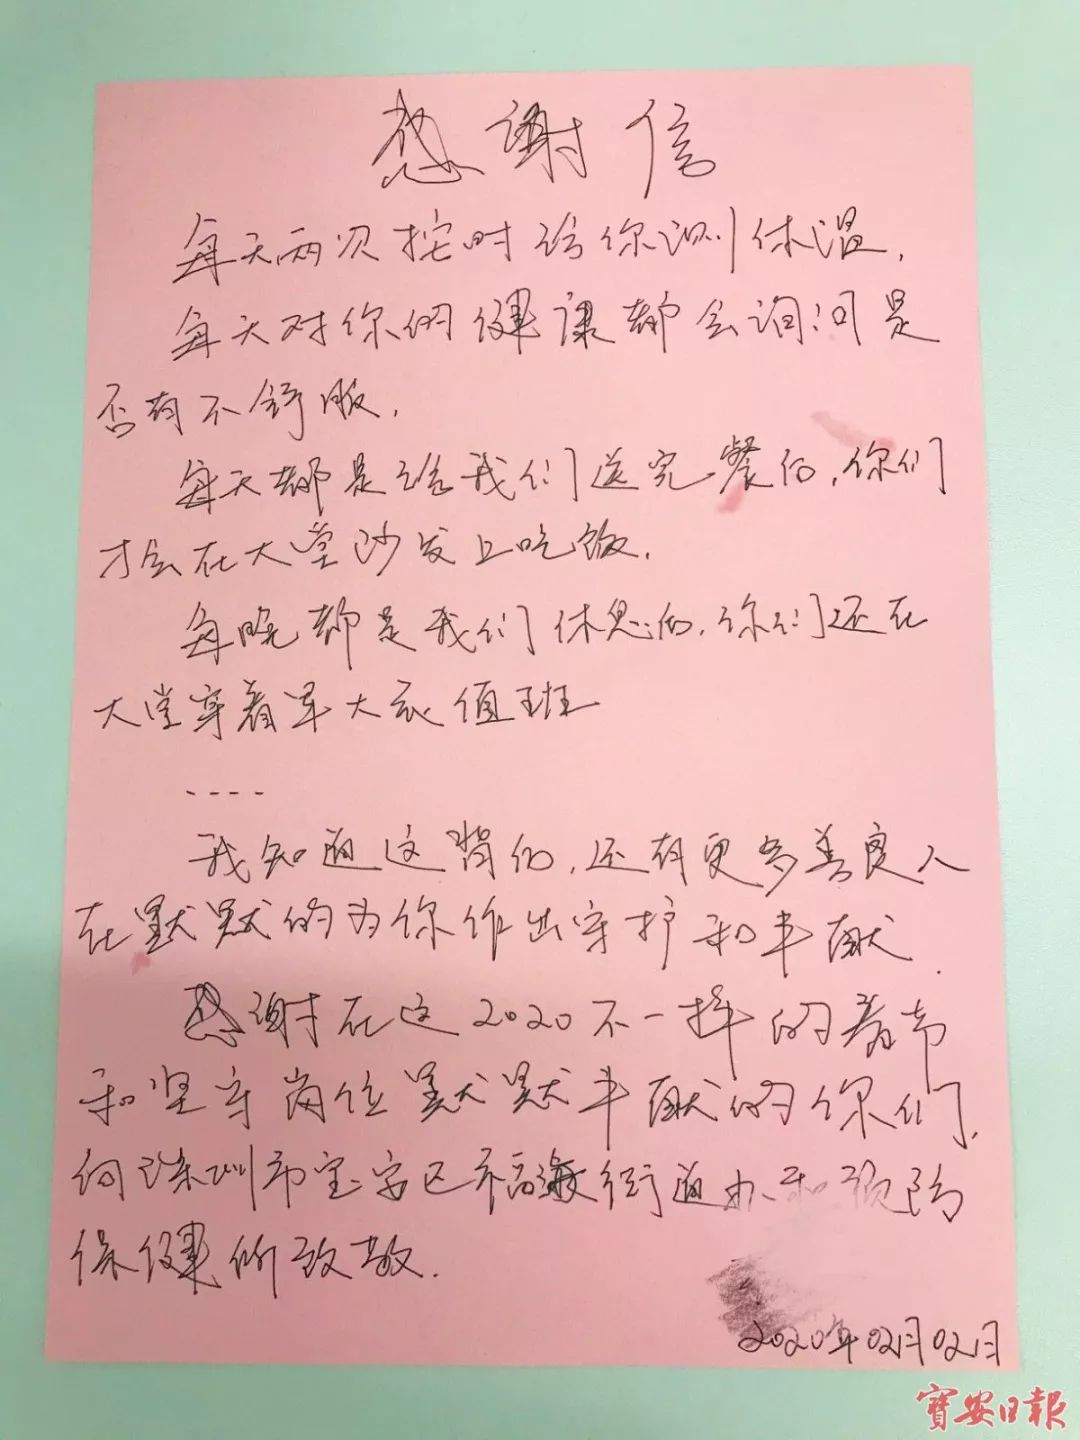 感谢信
每天两次按时给你测体温,
每天对你的健康都会询问是
否有不舒服.
每天都是给我们送完餐后,你们
才会在大堂沙发上吃饭.
每晚都是我们休息后,你们还在
大堂穿着军大衣值班
----
我知道这背后,还有更多善良人
在默默的为你作出守护和奉献.
感谢在这2020不一样的春节
和坚守岗位默默奉献的你们.
向深圳市宝安区福海街道办和预防
保健所致敬.
2020年02月02日
寶安日報